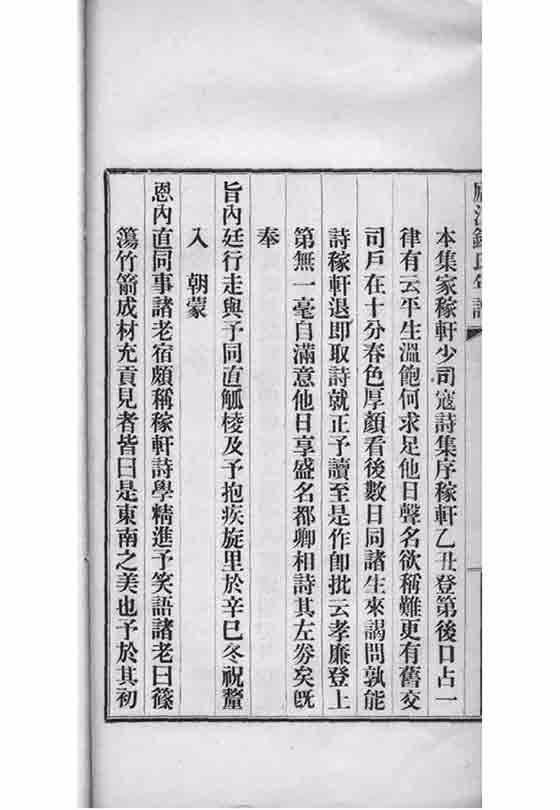 本集家稼軒少司寇詩集序稼軒乙丑登第後口占一
律有云平生溫飽何求足他日聲名欲稱難更有舊交
司戶在十分春色厚顏看後數日同諸生來謁問孰能
詩稼軒退即取詩就正予讀至是作即批云孝廉登上
第無一毫自滿意他日享盛名都卿相詩其左劵矣旣
奉
旨內廷行走與予同直觚棱及予抱疾旋里於辛巳冬祝釐
入　朝蒙
恩內直同事諸老宿頗稱稼軒詩學精進予笑語諸老曰篠
簜竹箭成材充貢見者皆曰是東南之美也予於其初